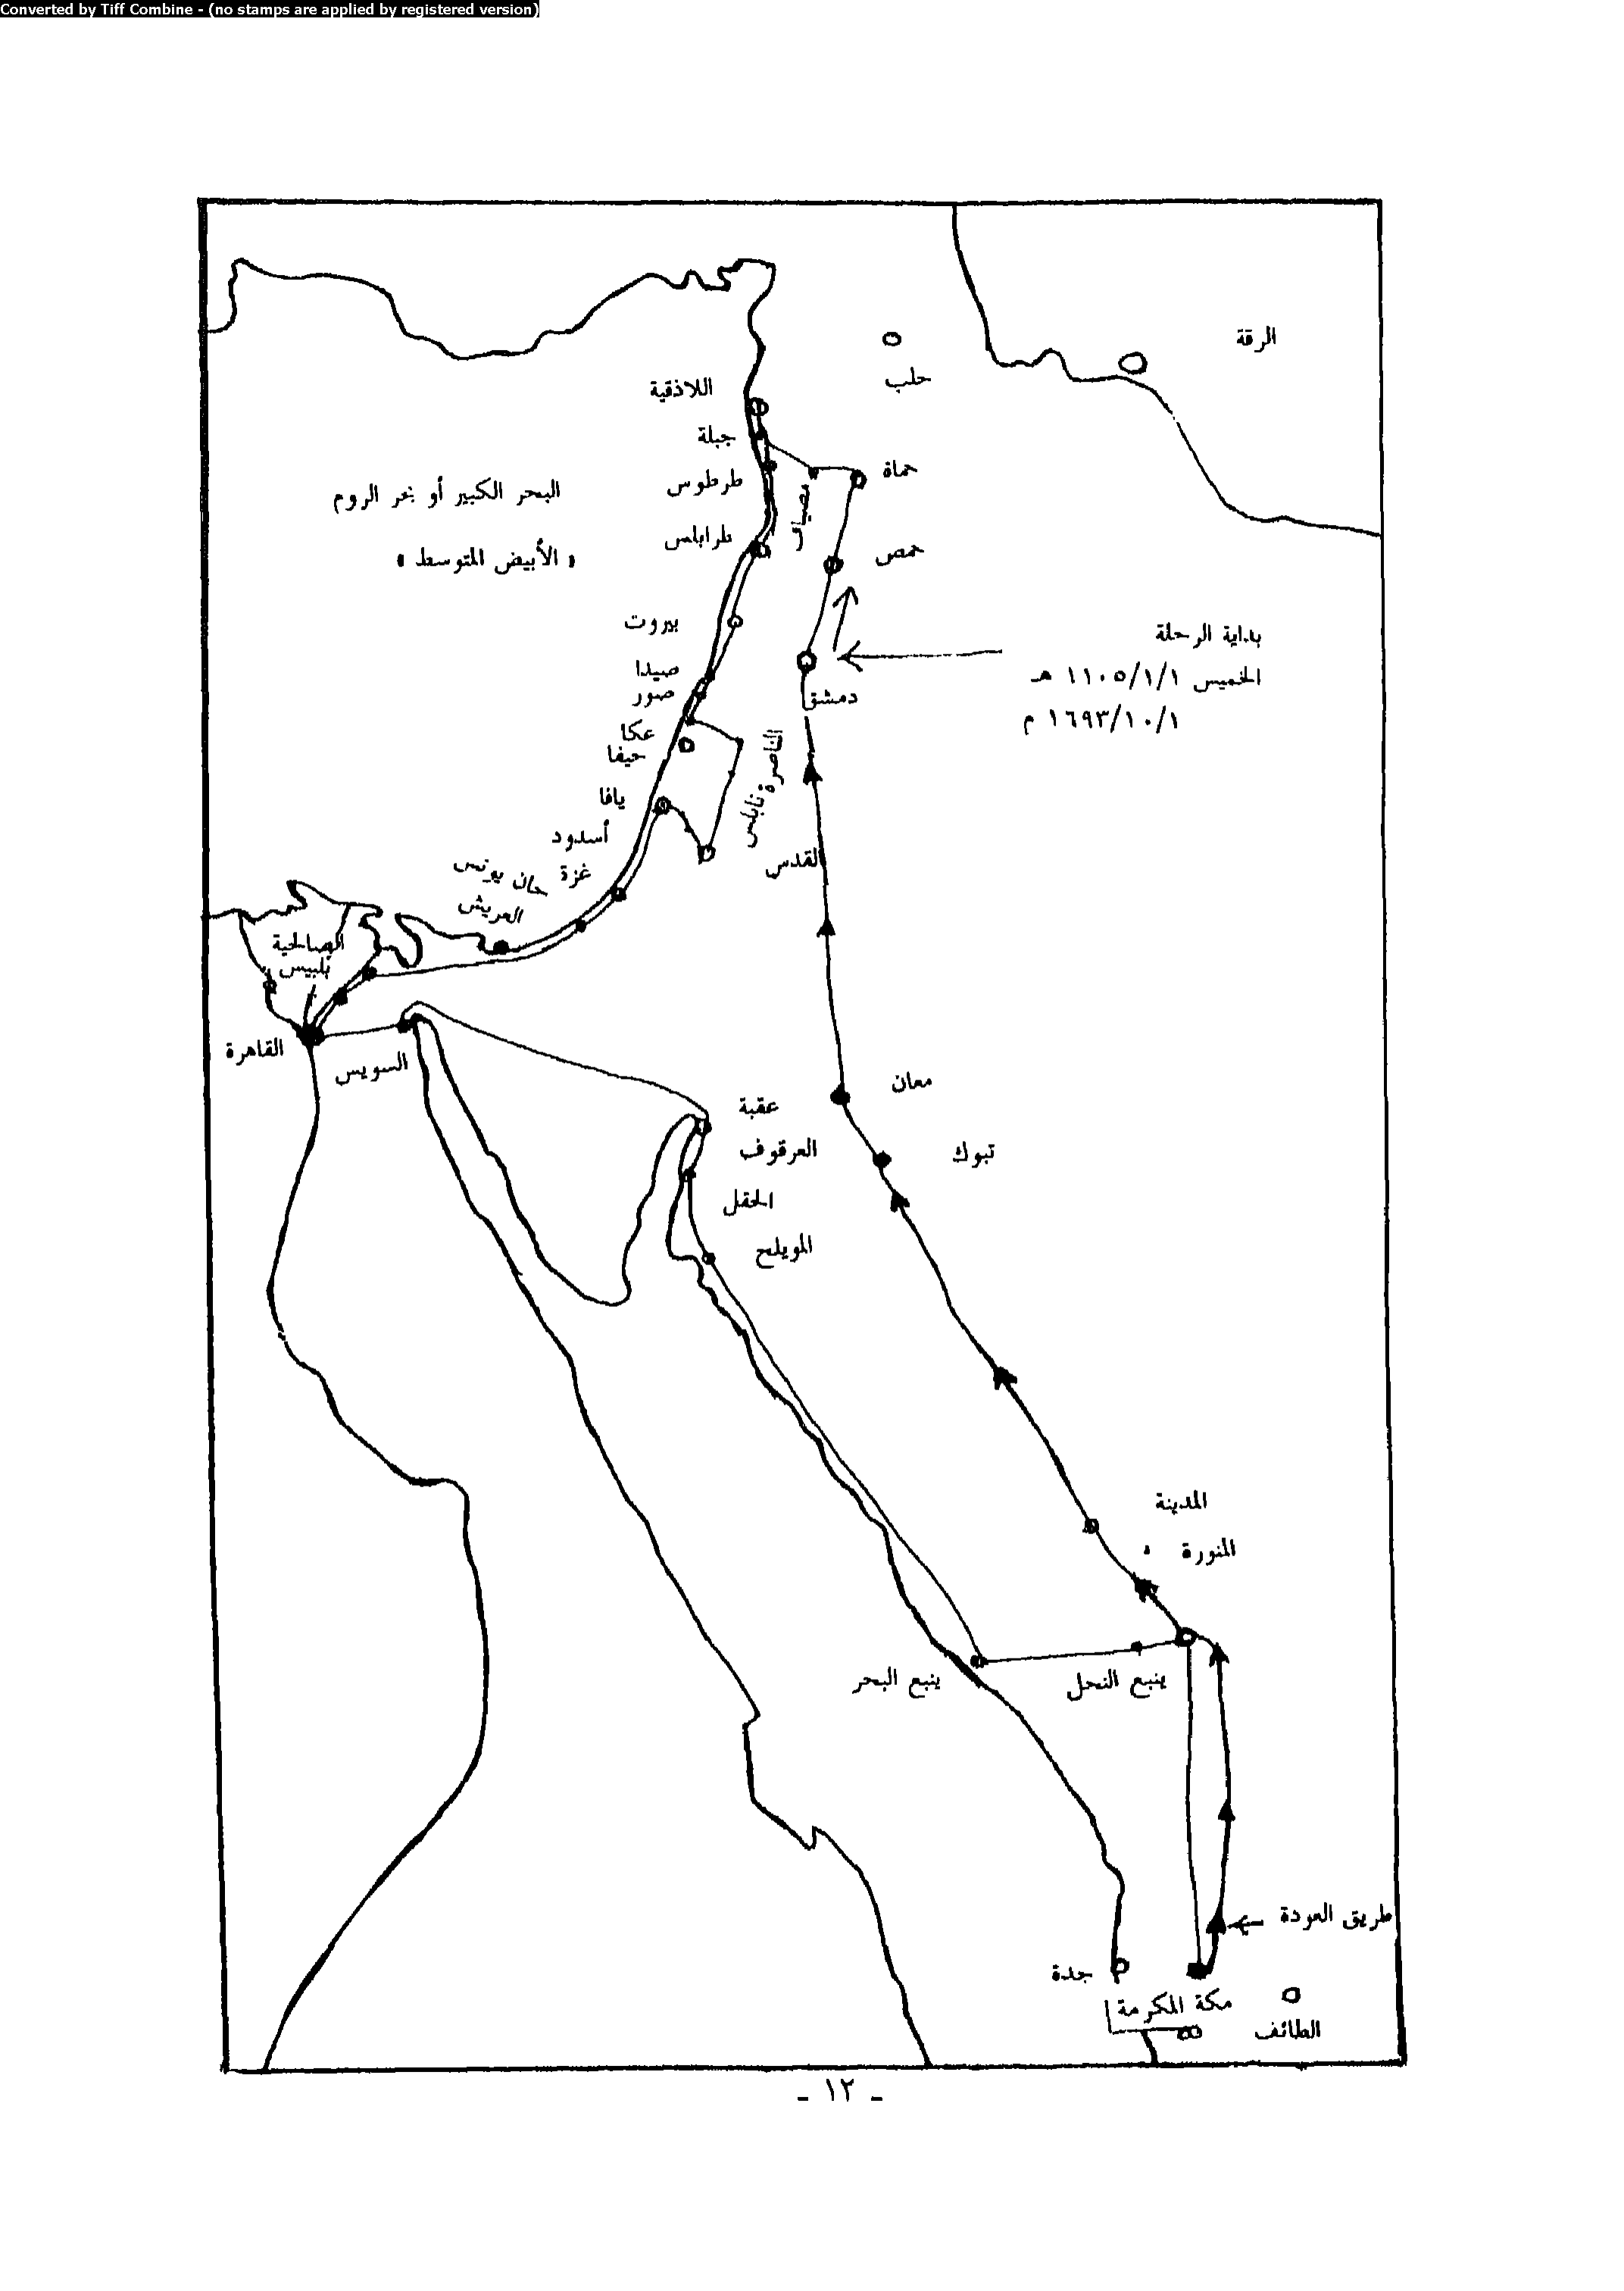 Converted by Tiff Combine - (no stamps are applied by registered version)
الرقة
حلب
اللاذقية
جبلة
حماة
طرطوس
مصياف
البحر الكبير أو بحر الروم
طرابلس
حمص
« الأبيض المتوسط »
بيروت
بداية الرحلة
الخميس ١١٠٥/١/١ هـ
١٦٩٣/١٠/١ م
صيدا
صور
دمشق
عكا
حيفا
الناصرة
يافا
نابلس
أسدود
القدس
غزة
خان يونس
العريش
الصالحية
بلبيس
القاهرة
السويس
معان
عقبة
العرقوف
تبوك
الحقل
المويلح
المدينة
المنورة
ينبع البحر
ينبع النحل
طريق العودة
جدة
مكة المكرمة
الطائف
- ١٢ -